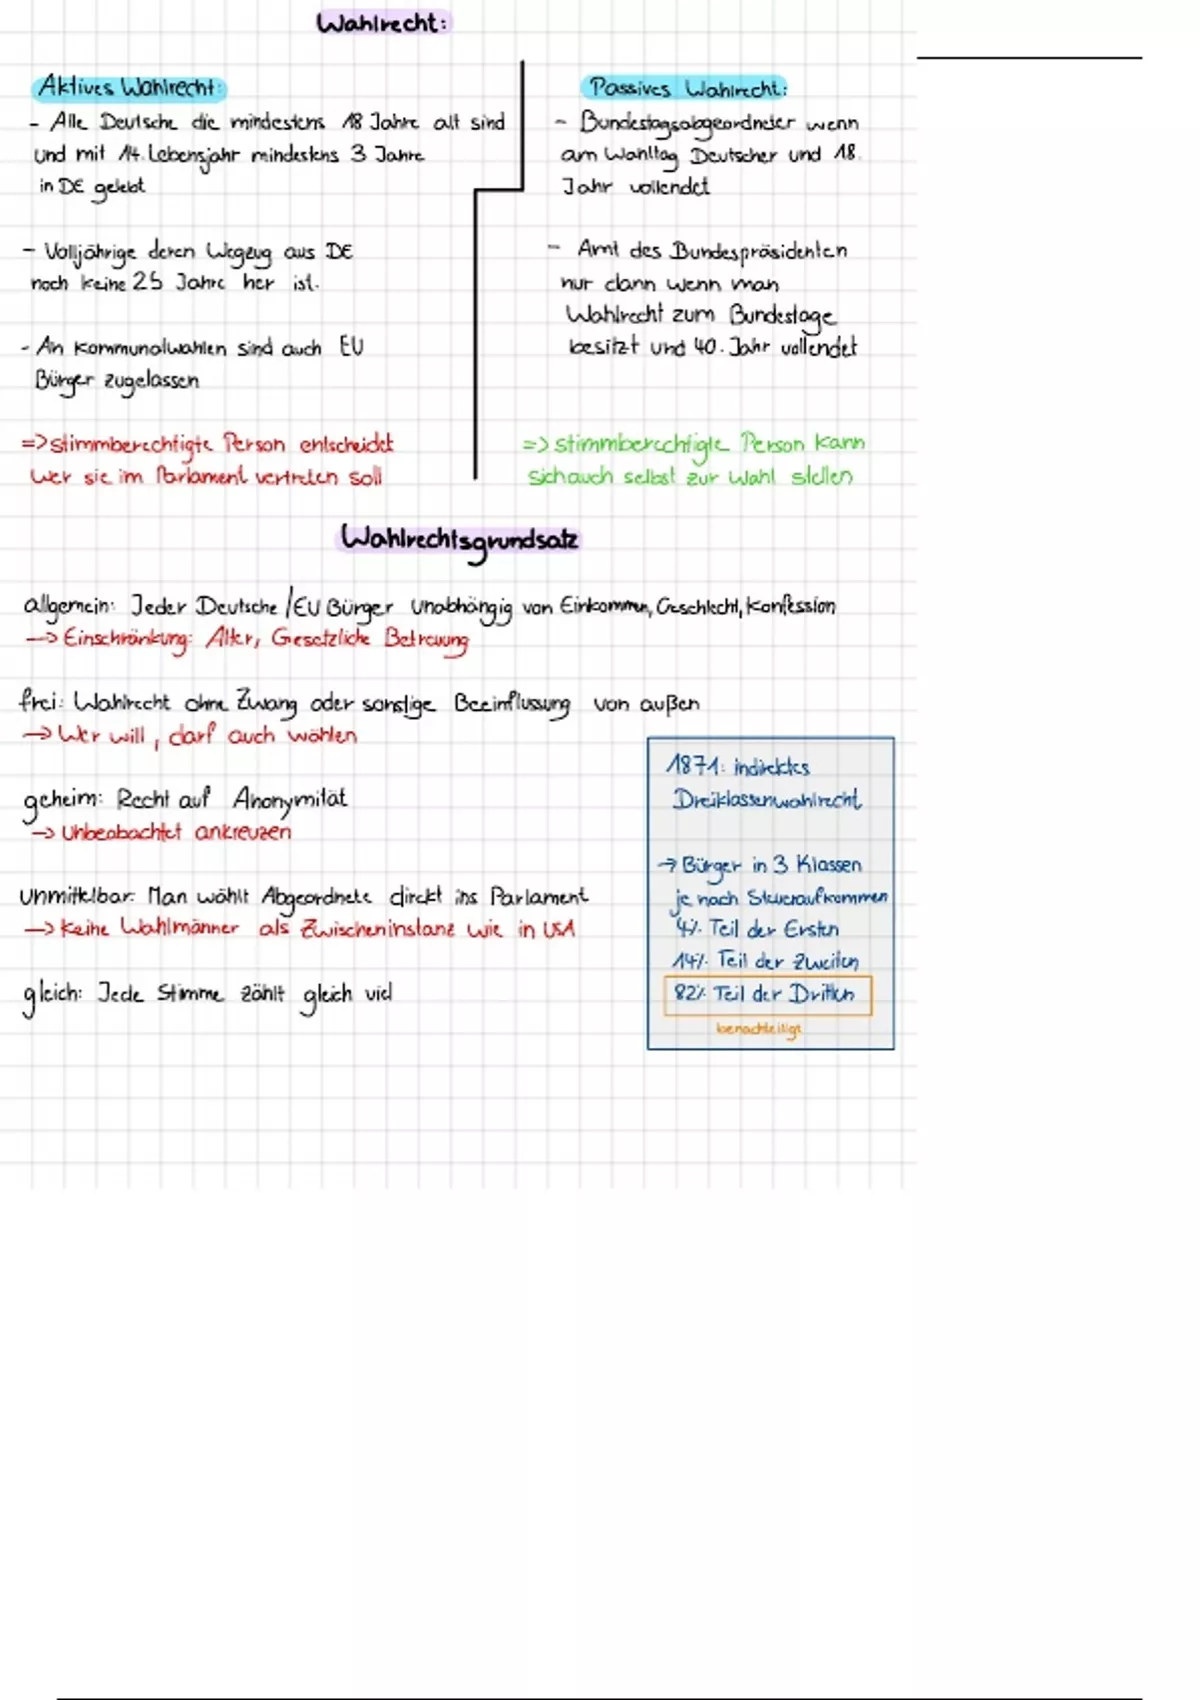 Wahlrecht:
Aktives Wahlrecht:
- Alle Deutsche die mindestens 18 Jahre alt sind
und mit 14. Lebensjahr mindestens 3 Jahre
in DE gelebt
- Volljährige deren Wegzug aus DE
noch keine 25 Jahre her ist.
- An Kommunalwahlen sind auch EU
Bürger zugelassen
=> stimmberechtigte Person entscheidet
wer sie im Parlament vertreten soll
Passives Wahlrecht:
- Bundestagsabgeordneter wenn
am Wahltag Deutscher und 18.
Jahr vollendet
- Amt des Bundespräsidenten
nur dann wenn man
Wahlrecht zum Bundestage
besitzt und 40. Jahr vollendet
=> stimmberechtigte Person kann
sich auch selbst zur Wahl stellen
Wahlrechtsgrundsatz
allgemein: Jeder Deutsche / EU Bürger unabhängig von Einkommen, Geschlecht, Konfession
-> Einschränkung: Alter, Gesetzliche Betreuung
frei: Wahlrecht ohne Zwang oder sonstige Beeinflussung von außen
-> Wer will, darf auch wählen
geheim: Recht auf Anonymität
-> unbeobachtet ankreuzen
unmittelbar: Man wählt Abgeordnete direkt ins Parlament
-> Keine Wahlmänner als Zwischeninstanz wie in USA
gleich: Jede Stimme zählt gleich viel
1871: indirektes
Dreiklassenwahlrecht
-> Bürger in 3 Klassen
je nach Steueraufkommen
4% Teil der Ersten
14% Teil der Zweiten
82% Teil der Dritten
benachteiligt